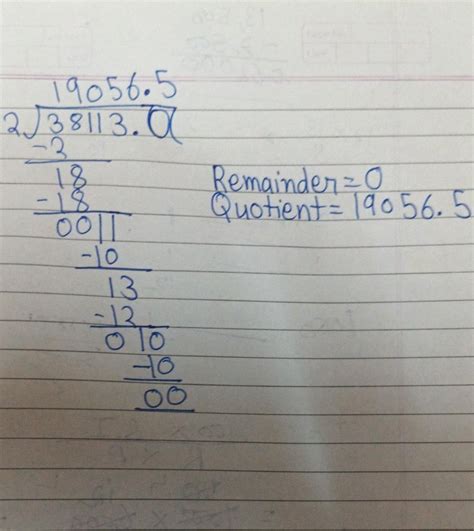 19056.5
2√38113.0
-2
18
-18
0011
-10
13
-12
010
-10
00
Remainder=0
Quotient=19056.5